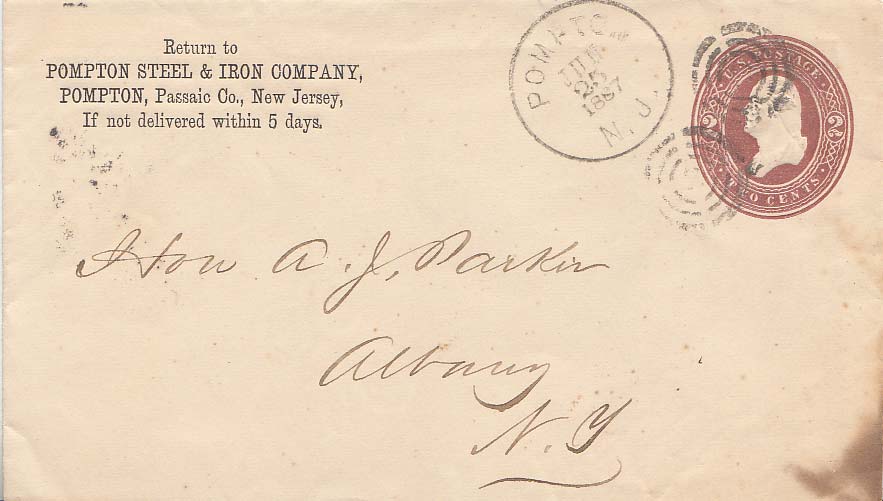 Return to
POMPTON STEEL & IRON COMPANY,
POMPTON, Passaic Co., New Jersey,
If not delivered within 5 days.
POMPTO
25
N.J.
U.S. POSTAGE
2 2
TWO CENTS
Hon A. J. Parker
Albany
N.Y